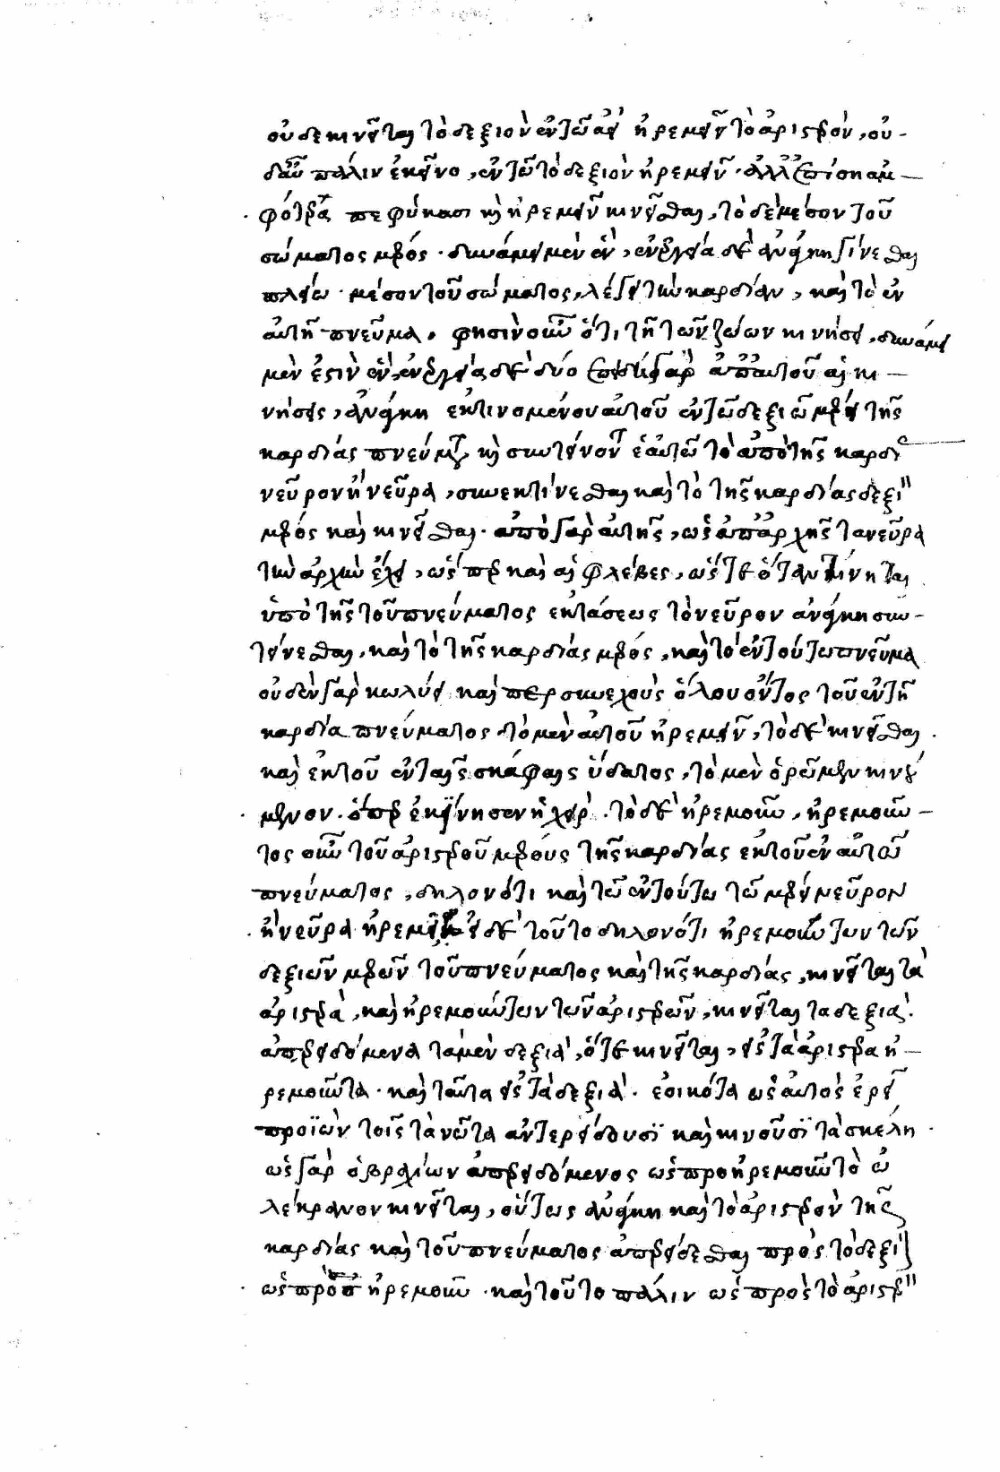 οὐδὲ κινεῖται τὸ δεξιὸν ἐν τῶ ἀεὶ ἠρεμεῖν τὸ ἀριστερὸν, οὐ-
δ' αὖ πάλιν ἐκεῖνο, ἐν τῶ τὸ δεξιὸν ἠρεμεῖν· ἀλλ' ἐπίσης ἀμ-
φότερα πεφύκασι καὶ ἠρεμεῖν κινεῖσθαι, τὸ δὲ μέσον τοῦ
σώματος μέρος· δυνάμει μὲν ἓν, ἐνεργεία δὲ ἀνάγκη γίνεσθαι
πλείω· μέσον τοῦ σώματος, λέγει τὴν καρδίαν, καὶ τὸ ἐν
αὐτῆ πνεῦμα. φησὶν οὖν ὅτι τῆ τῶν ζώων κινήσει, δυνάμει
μὲν ἐστὶν ἓν, ἐνεργεία δὲ δύο γὰρ ἀπ' αὐτοῦ αἱ κι-
νήσεις, ἀνάγκη ἐκτινομένου αὐτοῦ ἐν τῶ δεξιῶ μέρει τῆς
καρδίας πνεύματος καὶ συντείνοντος ἑαυτῶ τὸ ἀπὸ τῆς καρδίας
νεῦρον ἢ νεῦρα, συνεκτείνεσθαι καὶ τὸ τῆς καρδίας δεξιὸν
μέρος καὶ κινεῖσθαι· ἀπὸ γὰρ αὐτῆς, ὡς ἀπ' ἀρχῆς τὰ νεῦρα
τὴν ἀρχὴν ἔχει, ὥσπερ καὶ αἱ φλέβες, ὥστε ὅταν κινῆται
ὑπὸ τῆς τοῦ πνεύματος ἐκτάσεως τὸ νεῦρον ἀνάγκη συν-
τείνεσθαι, καὶ τὸ τῆς καρδίας μέρος, καὶ τὸ ἐν τούτω πνεῦμα
οὐδὲν γὰρ κωλύει καίπερ συνεχοῦς ὅλου ὄντος τοῦ ἐν τῆ
καρδία πνεύματος τὸ μὲν αὐτοῦ ἠρεμεῖν, τὸ δὲ κινεῖσθαι.
καὶ ἐκ τοῦ ἐν ταῖς σκάφαις ὕδατος, τὸ μὲν ὁρῶμεν κινού-
μενον· ὅπερ ἐκίνησεν ἡ χείρ· τὸ δὲ ἠρεμοῦν, ἠρεμοῦν-
τος οὖν τοῦ ἀριστεροῦ μέρους τῆς καρδίας ἐκ τοῦ ἐν αὐτῶ
πνεύματος, δηλονότι καὶ τῶ ἐν τούτω τῶ μέρει νεῦρον
ἢ νεῦρα ἠρεμεῖ εἰ δὲ τοῦτο δηλονότι ἠρεμούντων τῶν
δεξιῶν μερῶν τοῦ πνεύματος καὶ τῆς καρδίας, κινεῖται τὰ
ἀριστερὰ, καὶ ἠρεμούντων τῶν ἀριστερῶν, κινεῖται τὰ δεξιά.
ἀπερειδόμενα τὰ μὲν δεξιὰ, ὅτε κινεῖται, εἰς τὰ ἀριστερὰ ἠ-
ρεμοῦντα· καὶ ταῦτα εἰς τὰ δεξιὰ. ἐοικότα ὡς αὐτὸς ἐρεῖ
προϊὼν τοῖς τὰ νῶτα ἀντερείδουσϊ καὶ κινοῦσϊ τὰ σκέλη.
ὡς γὰρ ὁ βραχίων ἀπερειδόμενος ὡς πρὸ ἠρεμοῦν τὸ ὠ
λέκρανον κινεῖται, οὕτως ἀνάγκη καὶ τὸ ἀριστερὸν τῆς
καρδίας καὶ τοῦ πνεύματος ἀπερείδεσθαι πρὸς τὸ δεξιὸν
ὡς πρὸς ἠρεμοῦν· καὶ τοῦτο πάλιν ὡς πρὸς τὸ ἀριστερὸν